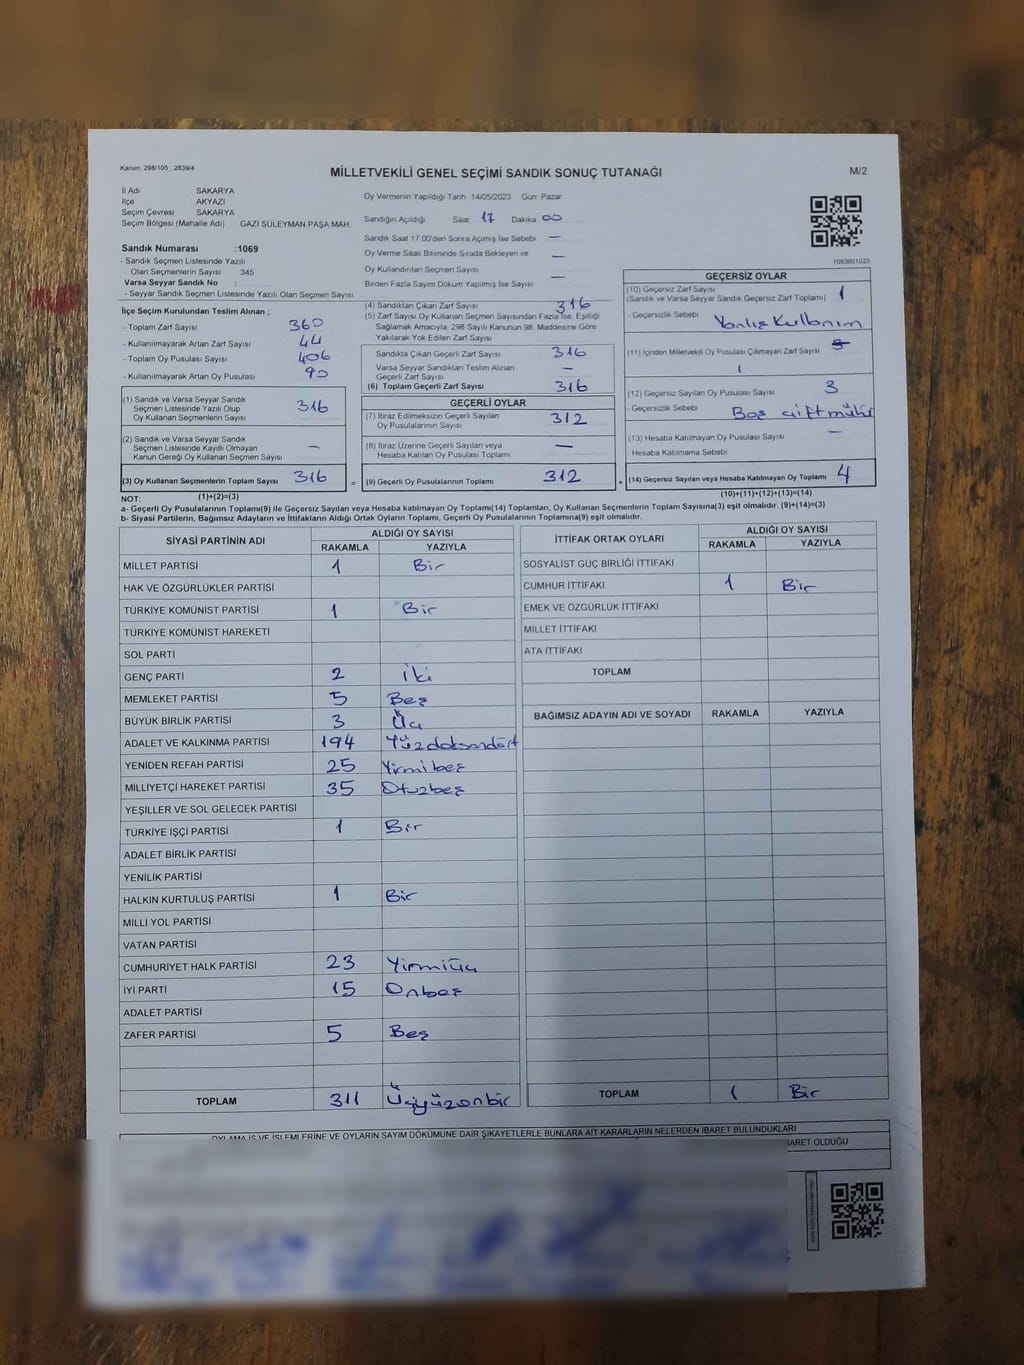 Kanun: 298/105 , 2839/4
MİLLETVEKİLİ GENEL SEÇİMİ SANDIK SONUÇ TUTANAĞI
M/2
İl Adı SAKARYA
İlçe AKYAZI
Seçim Çevresi SAKARYA
Seçim Bölgesi (Mahalle Adı) GAZİ SÜLEYMAN PAŞA MAH.
Sandık Numarası :1069
- Sandık Seçmen Listesinde Yazılı
Olan Seçmenlerin Sayısı 345
Varsa Seyyar Sandık No :
- Seyyar Sandık Seçmen Listesinde Yazılı Olan Seçmen Sayısı:
Oy Vermenin Yapıldığı Tarih 14/05/2023 Gün Pazar
Sandığın Açıldığı Saat 17 Dakika 00
Sandık Saat 17.00'den Sonra Açılmış İse Sebebi —
Oy Verme Saati Bitiminde Sırada Bekleyen ve —
Oy Kullandırılan Seçmen Sayısı
Birden Fazla Sayım Döküm Yapılmış İse Sayısı —
1083601023
İlçe Seçim Kurulundan Teslim Alınan ;
- Toplam Zarf Sayısı 360
- Kullanılmayarak Artan Zarf Sayısı 44
- Toplam Oy Pusulası Sayısı 406
- Kullanılmayarak Artan Oy Pusulası 90
(1) Sandık ve Varsa Seyyar Sandık
Seçmen Listesinde Yazılı Olup
Oy Kullanan Seçmenlerin Sayısı 316
(2) Sandık ve Varsa Seyyar Sandık
Seçmen Listesinde Kayıtlı Olmayan
Kanun Gereği Oy Kullanan Seçmen Sayısı —
(3) Oy Kullanan Seçmenlerin Toplam Sayısı 316 =
(1)+(2)=(3)
(4) Sandıktan Çıkan Zarf Sayısı 316
(5) Zarf Sayısı Oy Kullanan Seçmen Sayısından Fazla İse, Eşitliği
Sağlamak Amacıyla, 298 Sayılı Kanunun 98. Maddesine Göre
Yakılarak Yok Edilen Zarf Sayısı
Sandıkta Çıkan Geçerli Zarf Sayısı 316
Varsa Seyyar Sandıktan Teslim Alınan
Geçerli Zarf Sayısı —
(6) Toplam Geçerli Zarf Sayısı 316
GEÇERLİ OYLAR
(7) İtiraz Edilmeksizin Geçerli Sayılan
Oy Pusulalarının Sayısı 312
(8) İtiraz Üzerine Geçerli Sayılan veya
Hesaba Katılan Oy Pusulası Toplamı —
(9) Geçerli Oy Pusulalarının Toplamı 312 +
GEÇERSİZ OYLAR
(10) Geçersiz Zarf Sayısı
(Sandık ve Varsa Seyyar Sandık Geçersiz Zarf Toplamı) 1
- Geçersizlik Sebebi Yanlış Kullanım
(11) İçinden Milletvekili Oy Pusulası Çıkmayan Zarf Sayısı
(12) Geçersiz Sayılan Oy Pusulası Sayısı 3
- Geçersizlik Sebebi Boş çift mühür
(13) Hesaba Katılmayan Oy Pusulası Sayısı —
- Hesaba Katılmama Sebebi
(14) Geçersiz Sayılan veya Hesaba Katılmayan Oy Toplamı 4
(10)+(11)+(12)+(13)=(14)
NOT:
a- Geçerli Oy Pusulalarının Toplamı(9) ile Geçersiz Sayılan veya Hesaba katılmayan Oy Toplamı(14) Toplamları, Oy Kullanan Seçmenlerin Toplam Sayısına(3) eşit olmalıdır. (9)+(14)=(3)
b- Siyasi Partilerin, Bağımsız Adayların ve İttifakların Aldığı Ortak Oyların Toplamı, Geçerli Oy Pusulalarının Toplamına(9) eşit olmalıdır.
SİYASİ PARTİNİN ADI ALDIĞI OY SAYISI
RAKAMLA YAZIYLA
MİLLET PARTİSİ 1 Bir
HAK VE ÖZGÜRLÜKLER PARTİSİ
TÜRKİYE KOMÜNİST PARTİSİ 1 Bir
TÜRKİYE KOMÜNİST HAREKETİ
SOL PARTİ
GENÇ PARTİ 2 İki
MEMLEKET PARTİSİ 5 Beş
BÜYÜK BİRLİK PARTİSİ 3 Üç
ADALET VE KALKINMA PARTİSİ 194 Yüzdoksandört
YENİDEN REFAH PARTİSİ 25 Yirmibeş
MİLLİYETÇİ HAREKET PARTİSİ 35 Otuzbeş
YEŞİLLER VE SOL GELECEK PARTİSİ
TÜRKİYE İŞÇİ PARTİSİ 1 Bir
ADALET BİRLİK PARTİSİ
YENİLİK PARTİSİ
HALKIN KURTULUŞ PARTİSİ 1 Bir
MİLLİ YOL PARTİSİ
VATAN PARTİSİ
CUMHURİYET HALK PARTİSİ 23 Yirmiüç
İYİ PARTİ 15 Onbeş
ADALET PARTİSİ
ZAFER PARTİSİ 5 Beş
TOPLAM 311 Üçyüzonbir
İTTİFAK ORTAK OYLARI ALDIĞI OY SAYISI
RAKAMLA YAZIYLA
SOSYALİST GÜÇ BİRLİĞİ İTTİFAKI
CUMHUR İTTİFAKI 1 Bir
EMEK VE ÖZGÜRLÜK İTTİFAKI
MİLLET İTTİFAKI
ATA İTTİFAKI
TOPLAM
BAĞIMSIZ ADAYIN ADI VE SOYADI RAKAMLA YAZIYLA
TOPLAM 1 Bir
OYLAMA İŞ VE İŞLEMLERİNE VE OYLARIN SAYIM DÖKÜMÜNE DAİR ŞİKAYETLERLE BUNLARA AİT KARARLARIN NELERDEN İBARET BULUNDUKLARI
İBARET OLDUĞU